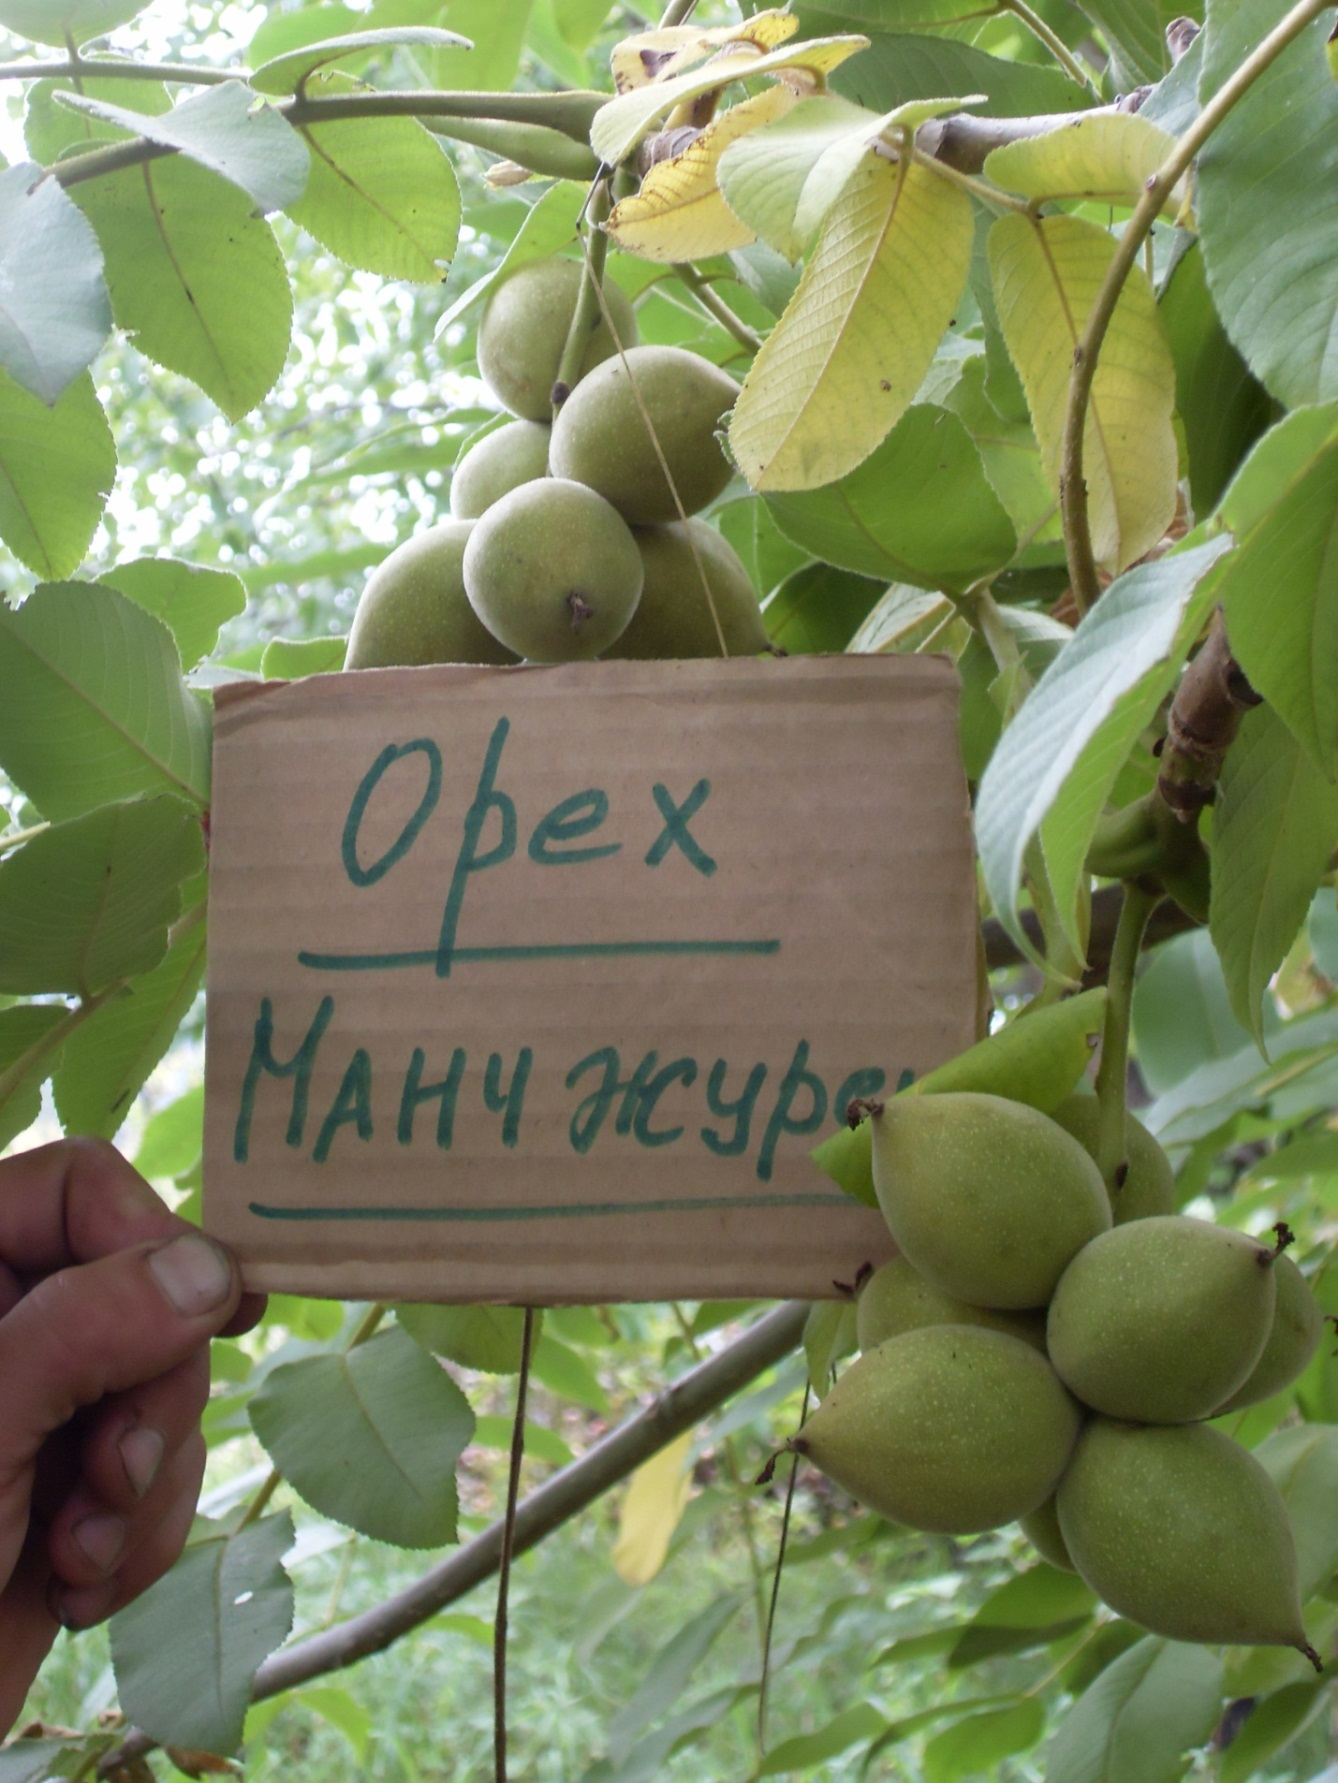 Орех
Манчжуре